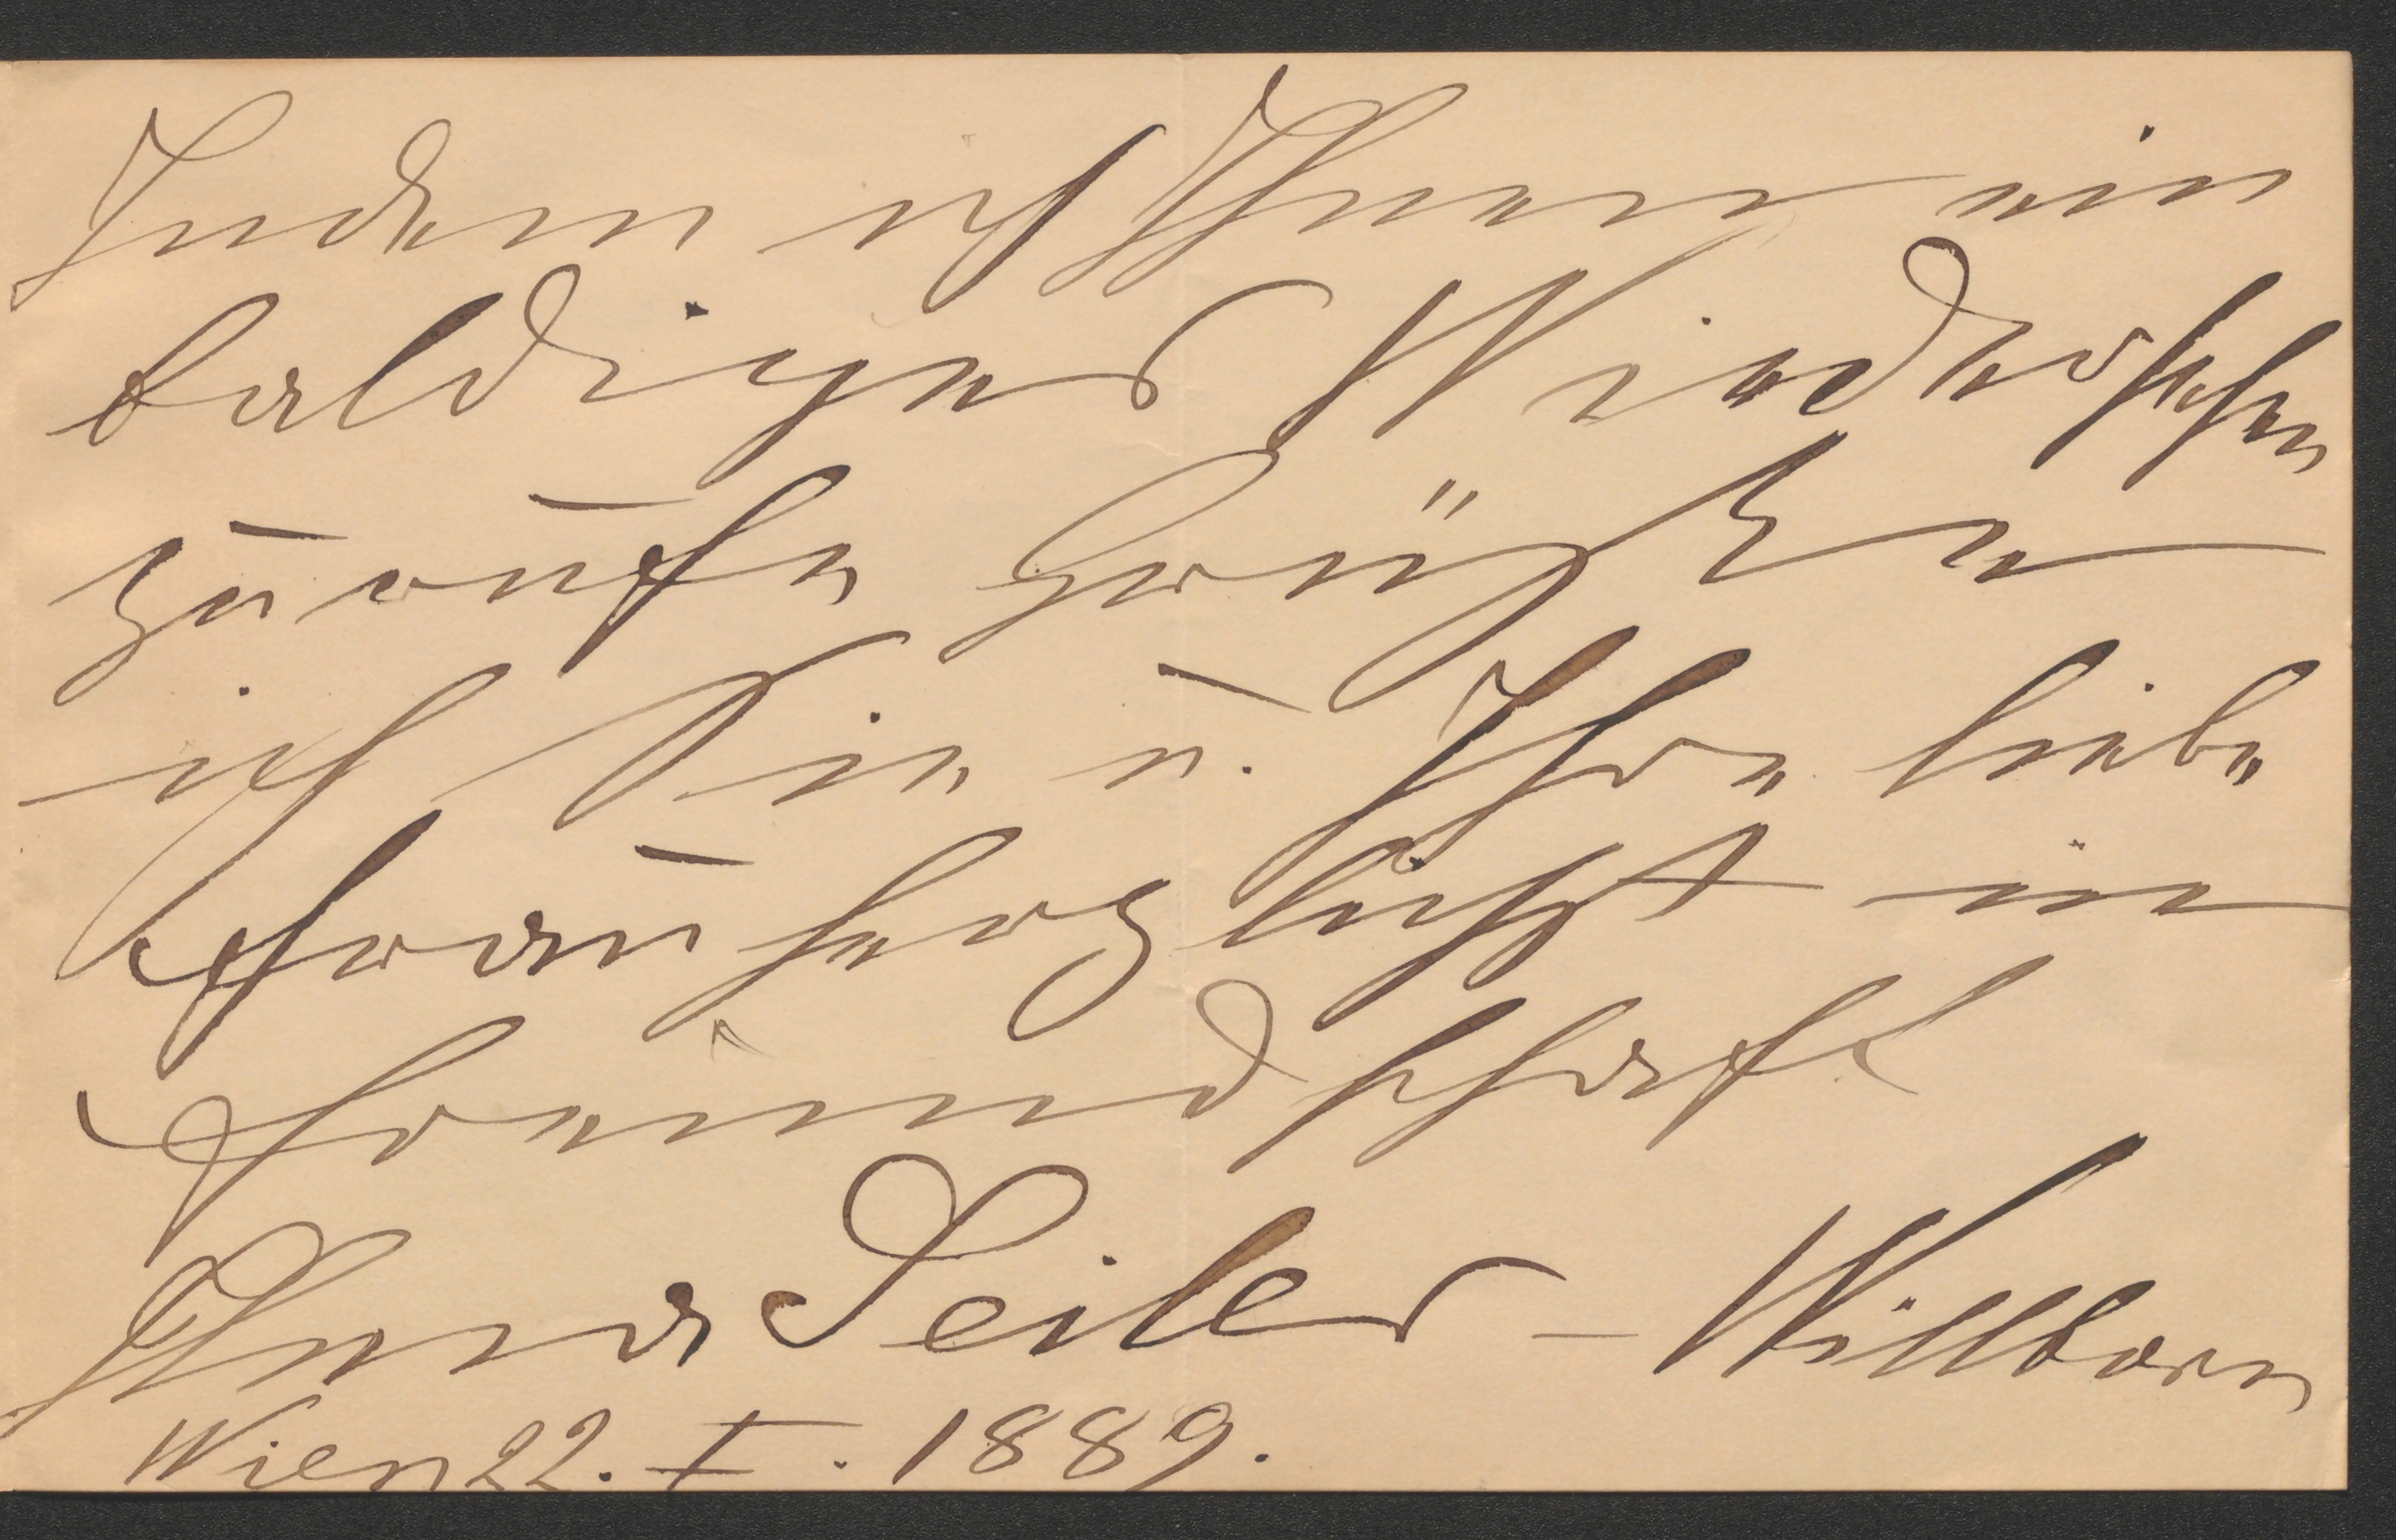 Indem ich Ihnen ein
baldiges Wiedersehen
zurufe grüße
ich Sie u. Ihre liebe
Frau herzlichst in
Freundschaft
Ihre Seiler – Willborn
Wien 22. I. 1889.